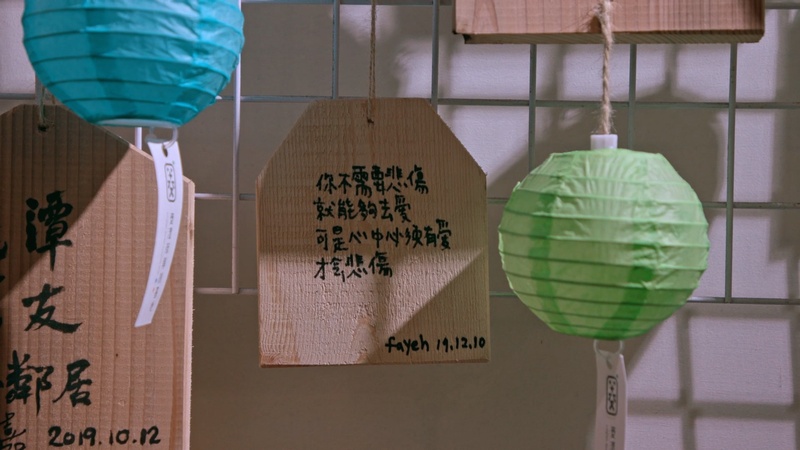 你不需要悲傷
就能夠去愛
可是心中必須有愛
才會悲傷
fayeh 19.12.10
譚
友
鄰居
2019.10.12